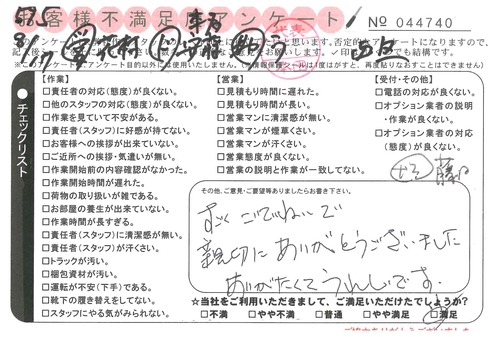 お客様不満足度アンケート
No 044740
思います。否定的なアンケートになりますので、
お願いします。✓印
でも結構です。
※このアンケートは、アンケート目的以外には使用いたしません。
チェックリスト
【作業】
□責任者の対応(態度)が良くない。
□他のスタッフの対応(態度)が良くない。
□作業を見ていて不安がある。
□責任者(スタッフ)に好感が持てない。
□お客様への挨拶が出来ていない。
□ご近所への挨拶・気遣いが無い。
□作業開始前の内容確認がなかった。
□作業開始時間が遅れた。
□荷物の取り扱いが雑である。
□お部屋の養生が出来ていない。
□作業時間が長すぎる。
□責任者(スタッフ)に清潔感が無い。
□責任者(スタッフ)が汗くさい。
□トラックが汚い。
□梱包資材が汚い。
□運転が不安(下手)である。
□靴下の履き替えをしてない。
□スタッフにやる気がみられない。
【営業】
□見積もり時間に遅れた。
□見積もり時間が長い。
□営業マンに清潔感が無い。
□営業マンが煙草くさい。
□営業マンが汗くさい。
□営業態度が良くない。
□営業の説明と作業が一致してない。
【受付・その他】
□電話の対応が良くない。
□オプション業者の説明
・作業が良くない。
□オプション業者の対応
(態度)が良くない。
その他、ご意見・ご要望等ありましたらお書き下さい。
すごくていねいで
親切にありがとうございました
ありがたくてうれしいです。
☆当社をご利用いただきまして、ご満足いただけたでしょうか?
□不満 □やや不満 □普通 □やや満足 □満足